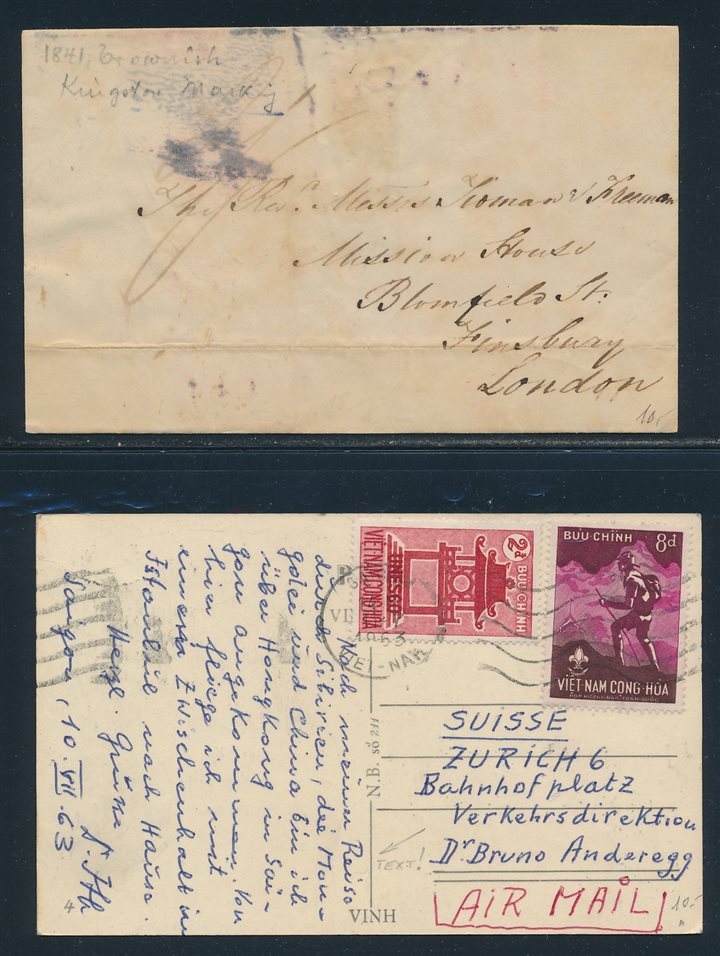 1841, brownish
Kingston Marking
The Rev.d Messrs Freeman
Mission House
Blomfield St:
Finsbury
London
10.-
2đ
BƯU CHÍNH
UNESCO
VIỆT NAM CỘNG HÒA
BƯU-CHÍNH 8đ
VIỆT-NAM CỘNG-HÒA
1963
VIET-NAM
Nach meiner Reise
durch Sibirien, die Mon-
golei und China bin ich
über Hongkong in Sai-
gon angekommen. Von
hier fliege ich mit
einem Zwischenhalt in
Istanbul nach Hause.
Herzl. Grüsse
Saigon, 10.VIII.63
N.B. số 211
SUISSE
ZURICH 6
Bahnhofplatz
Verkehrsdirektion
Dr Bruno Anderegg
TEXT!
AIR MAIL
4
VINH
10.-
A